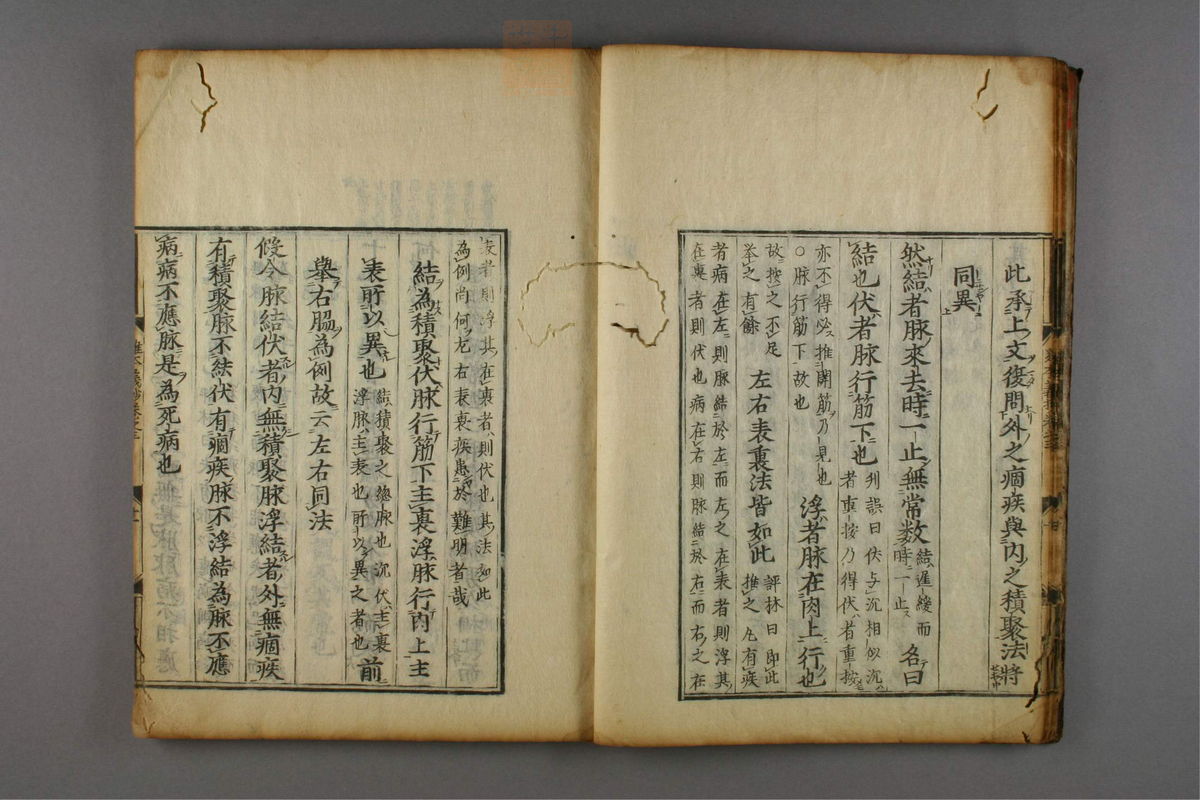 此承上文復問外之痼疾與内之積聚法將
同異
然結者脉來去時一止無常数 結遅緩而時一止 名曰
結也伏者脉行筋下也 刋誤曰伏与沉相似沉者重按乃得伏者重按
亦不得必推開筋乃見也○脉行筋下故也 浮者脉在肉上行也
故按之不足挙之有餘 左右表裏法皆如此 評林曰即此推之凢有疾
者病在左則脉結於左而左之在表者則浮其
在裏者則伏也病在右則脉結於右而右之在
表者則浮其在裏者則伏也其法如此
為例尚何左右表裏疾患於難明者哉
結為積聚伏脉行筋下主裏浮脉行肉上主
表所以異也 結積聚之總脉也沉伏主裏浮脉主表也所以異之者也 前
舉右脇為例故云左右同法
假令脉結伏者内無積聚脉浮結者外無痼疾
有積聚脉不結伏有痼疾脉不浮結為脉不應
病病不應脉是為死病也